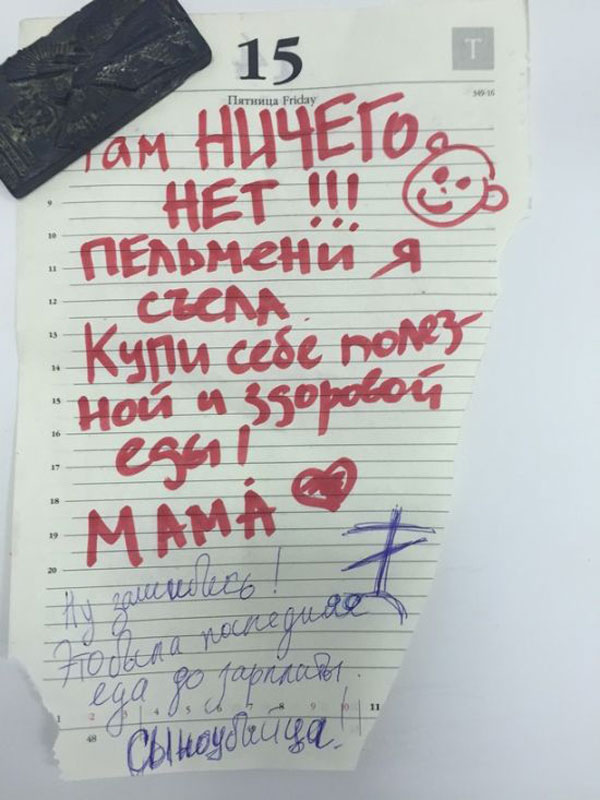 15
T
Пятница Friday
349-16
Там НИЧЕГО
НЕТ !!!
9
10
ПЕЛЬМЕНИ Я
11
СЪЕЛА
12
13
КУПИ себе полез-
14
ной и здоровой
15
16
еды!
17
18
МАМА
19
20
Ну зашибись!
Это была последняя
еда до зарплаты.
1 2 3 4 5 6 7 8 9 10 11
48
Сыноубийца!